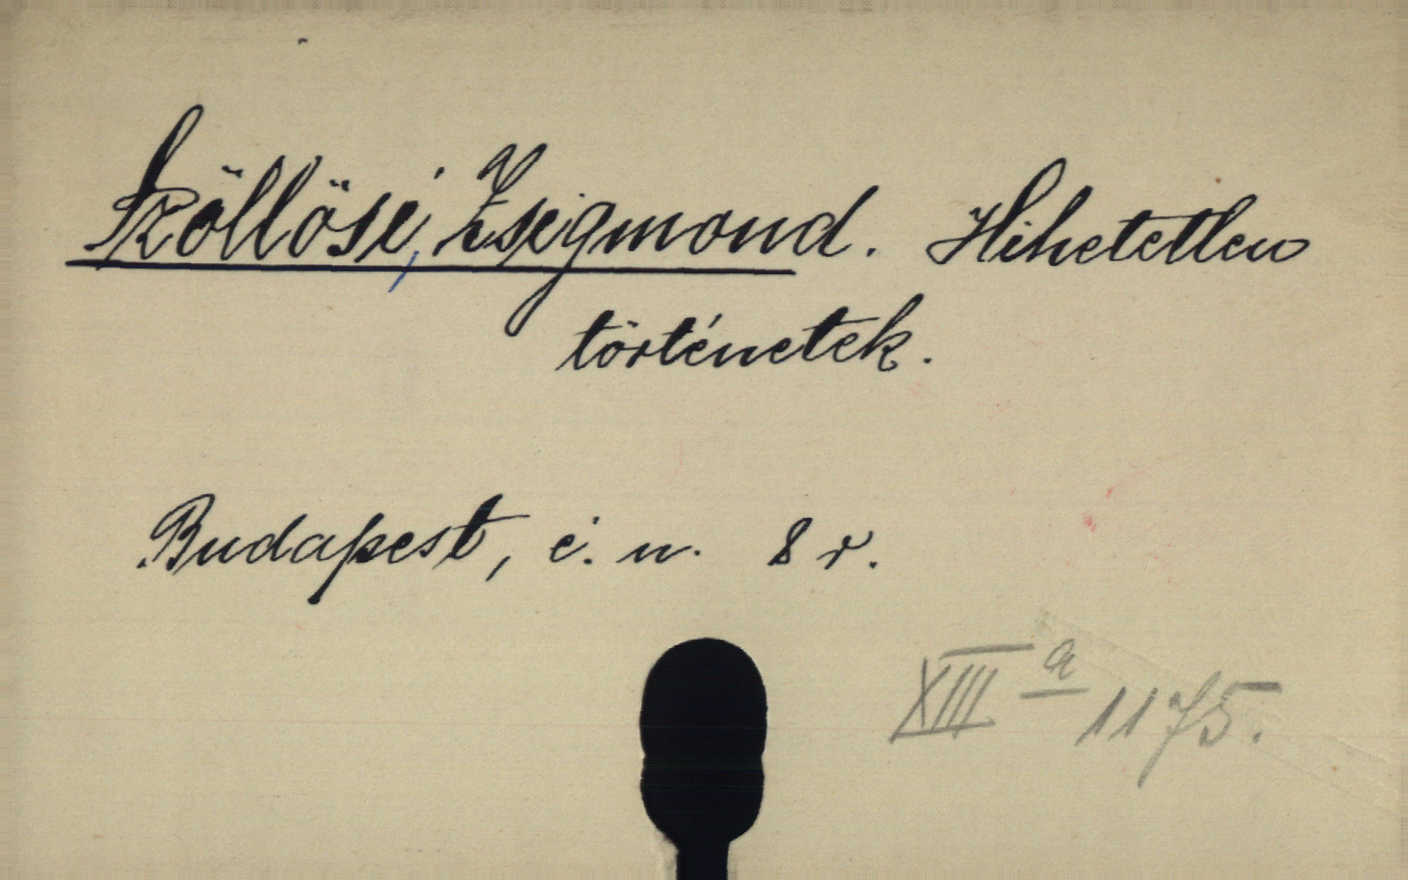 Szöllösi, Zsigmond. Hihetetlen
történetek.
Budapest, é. n. 8 r.
XIII a 1175.